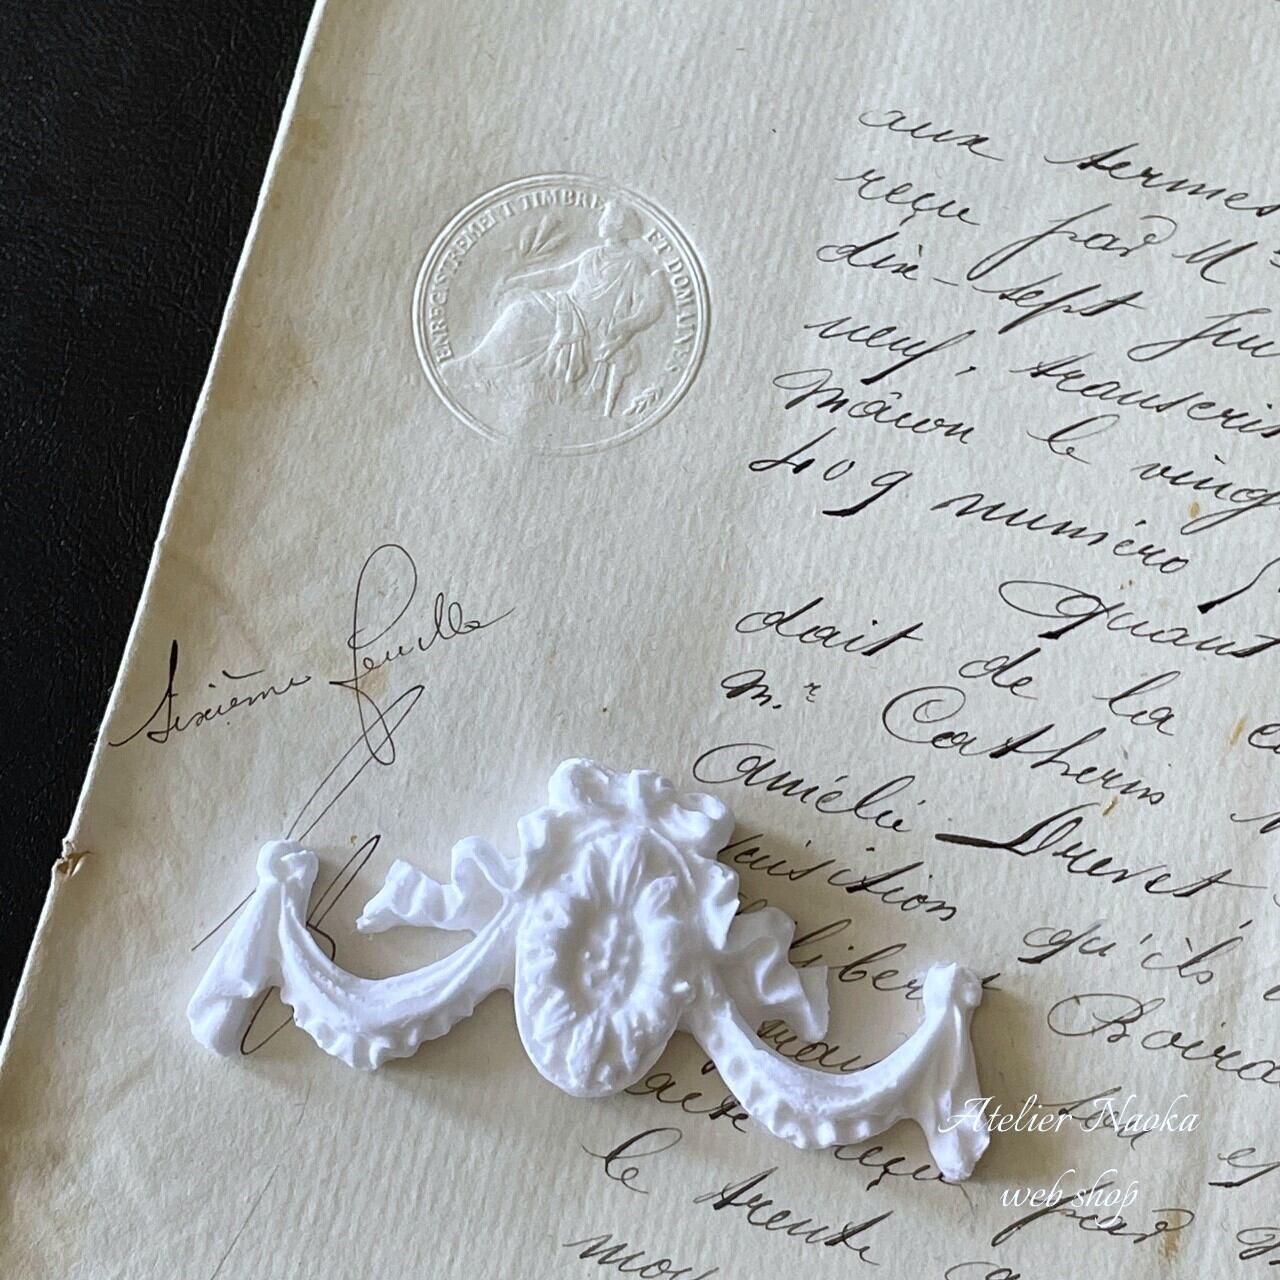 ENREGISTREMENT TIMBRE ET DOMAINES
aux termes
reçu par Mᵉ
dix-sept Jui
neuf, transcrit
Mâcon le ving
409 numéro
Quant
dait de la
Mʳ Catherin
Amélie Drevet,
quisition qu'ils
liber Boira
acte reçu par
le trente
Sixième feuille
Atelier Naoka
web shop